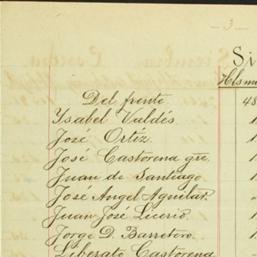 - 3 -
Si
Hls m
Del frente 48
Ysabel Valdés.
José Ortíz.
José Castorena gre.
Juan de Santiago
José Angel Aguilar.
Juan José Lucerio.
Jorge D. Barretero.
Liberato Castorena